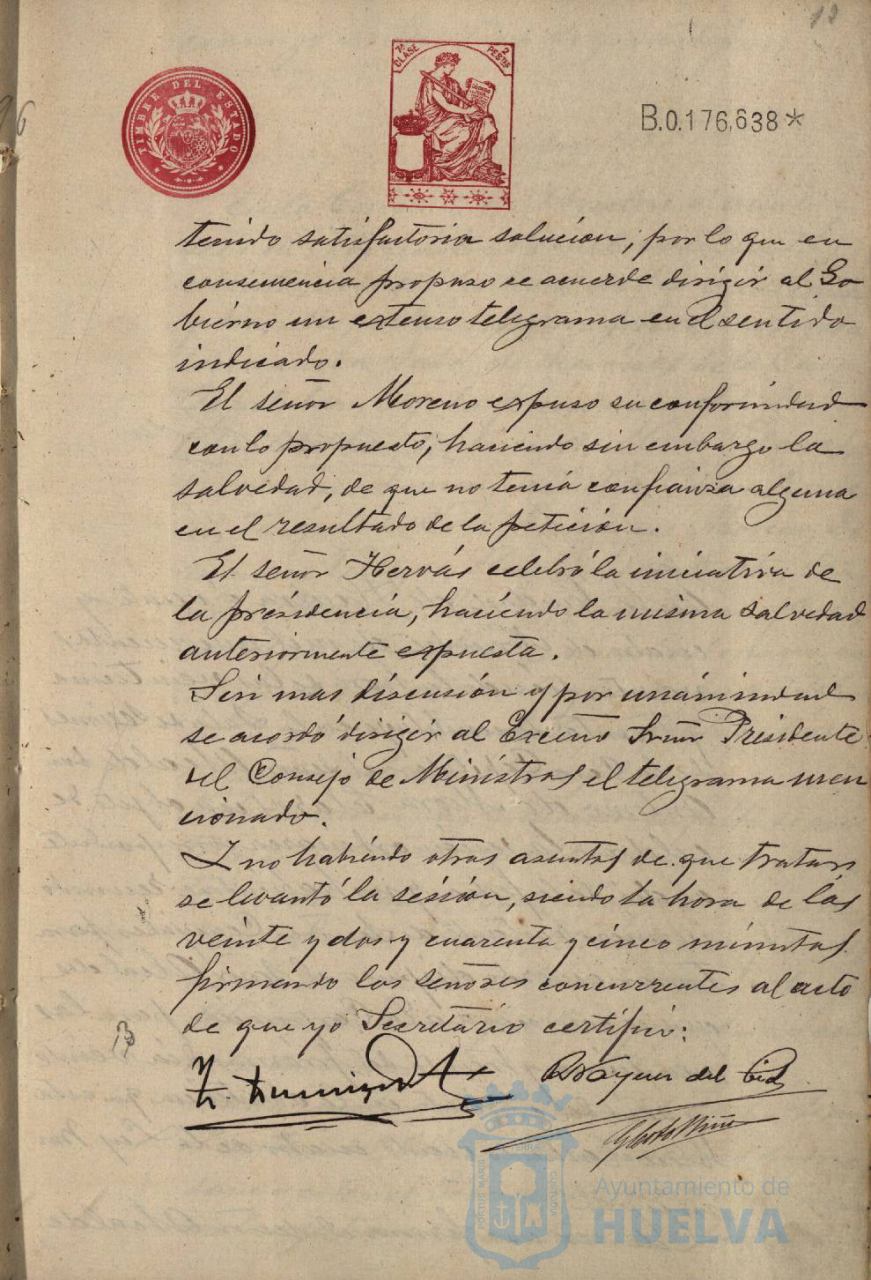 18
TIMBRE DEL ESTADO
7ª CLASE 2 PESTAS
B.0.176,638*
tenido satisfactoria solucion, por lo que en
consecuencia propuso se acuerde dirigir al Go
bierno un extenso telegrama en el sentido
indicado.
El señor Moreno expuso su conformidad
con lo propuesto, haciendo sin embargo la
salvedad, de que no tenia confianza alguna
en el resultado de la petición.
El señor Hervás celebró la iniciativa de
la présidencia, haciendo la misma salvedad
anteriormente expuesta.
Sin mas discusión y por unánimidad
se acordó dirigir al Excmo Señor Presidente
del Consejo de Ministros el telegrama men
cionado.
Y no habiendo otros asuntos de que tratar
se levantó la sesión, siendo la hora de las
veinte y dos y cuarenta y cinco minutos
firmando los señores concurrentes al acto
de que yo Secretário certifico:
del Cid
Ayuntamiento de
HUELVA